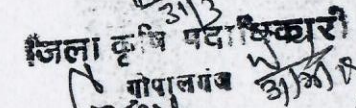 31/3
जिला कृषि पदाधिकारी
गोपालगंज